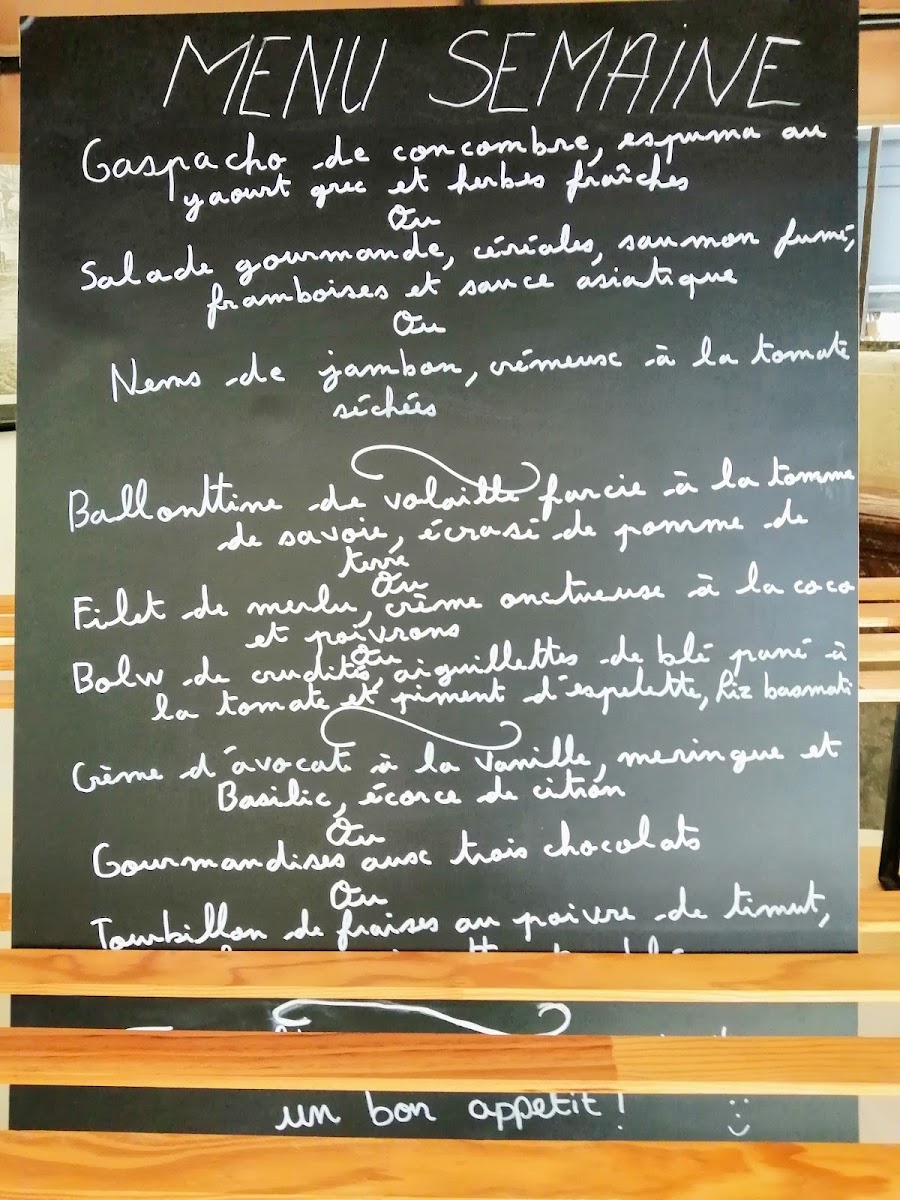 MENU SEMAINE
Gaspacho de concombre, espuma au
yaourt grec et herbes fraîches
Ou
Salade gourmande, céréales, saumon fumé,
framboises et sauce asiatique
Ou
Nems de jambon, crémeuse à la tomate
séchées
Ballonttine de volaille farcie à la tomme
de savoie, écrasé de pomme de
terre
Ou
Filet de merlu, crème onctueuse à la coco
et poivrons
Ou
Bolw de crudités, aiguillettes de blé pané à
la tomate et piment d'espelette, Riz basmati
Crème d'avocat à la vanille, meringue et
Basilic, écorce de citron
Ou
Gourmandises aux trois chocolats
Ou
Tourbillon de fraises au poivre de timut,
un bon appetit !